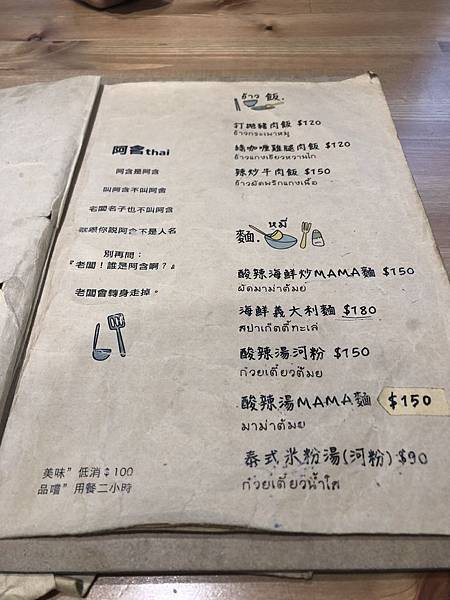 阿含thai
阿含是阿含
叫阿含不叫阿舍
老闆名子也不叫阿含
就跟你說阿含不是人名
別再問：
『老闆！誰是阿含啊？』
老闆會轉身走掉。
美味" 低消$100
品嚐" 用餐二小時
ข้าว 飯.
打拋豬肉飯 $120
ข้าวกระเพาหมู
綠咖哩雞腿肉飯 $120
ข้าวแกงเขียวหวานไก่
辣炒牛肉飯 $150
ข้าวผัดพริกแกงเนื้อ
麵. หมี่
酸辣海鮮炒MAMA麵 $150
ผัดมาม่าต้มยำ
海鮮義大利麵 $180
สปาเก็ตตี้ทะเล
酸辣湯河粉 $150
ก๋วยเตี๋ยวต้มยำ
酸辣湯MAMA麵 $150
มาม่าต้มยำ
泰式米粉湯(河粉) $90
ก๋วยเตี๋ยวน้ำใส